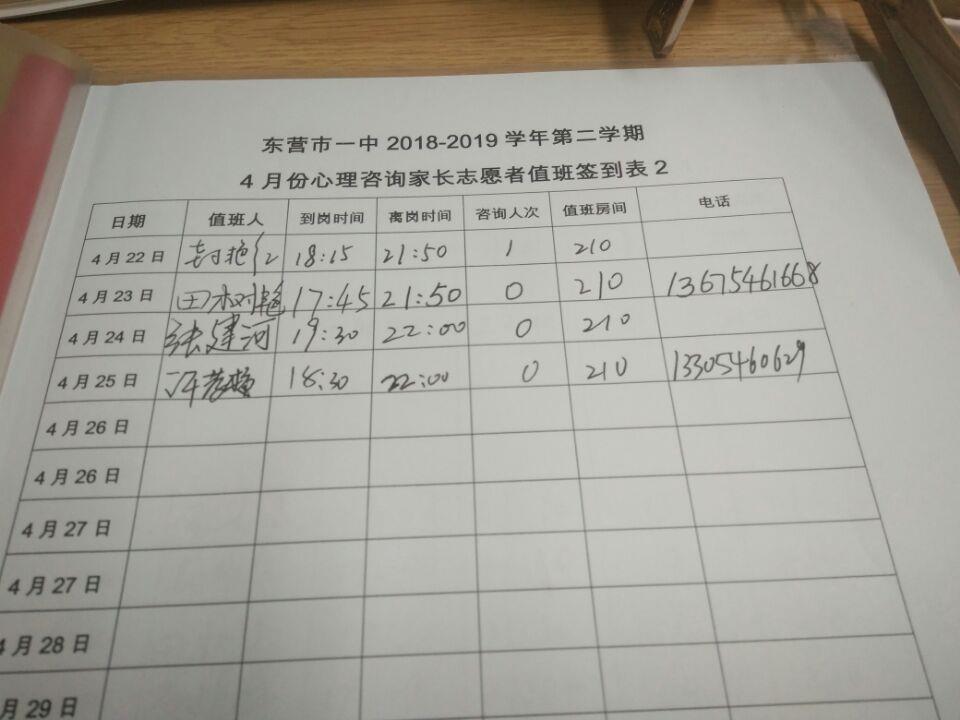 东营市一中 2018-2019 学年第二学期
4 月份心理咨询家长志愿者值班签到表 2
日期 值班人 到岗时间 离岗时间 咨询人次 值班房间 电话
4 月 22 日 封艳红 18:15 21:50 1 210
4 月 23 日 田树艳 17:45 21:50 0 210 13675461668
4 月 24 日 张建河 19:30 22:00 0 210
4 月 25 日 18:30 22:00 0 210 13305460629
4 月 26 日
4 月 26 日
4 月 27 日
4 月 27 日
4 月 28 日
月 29 日